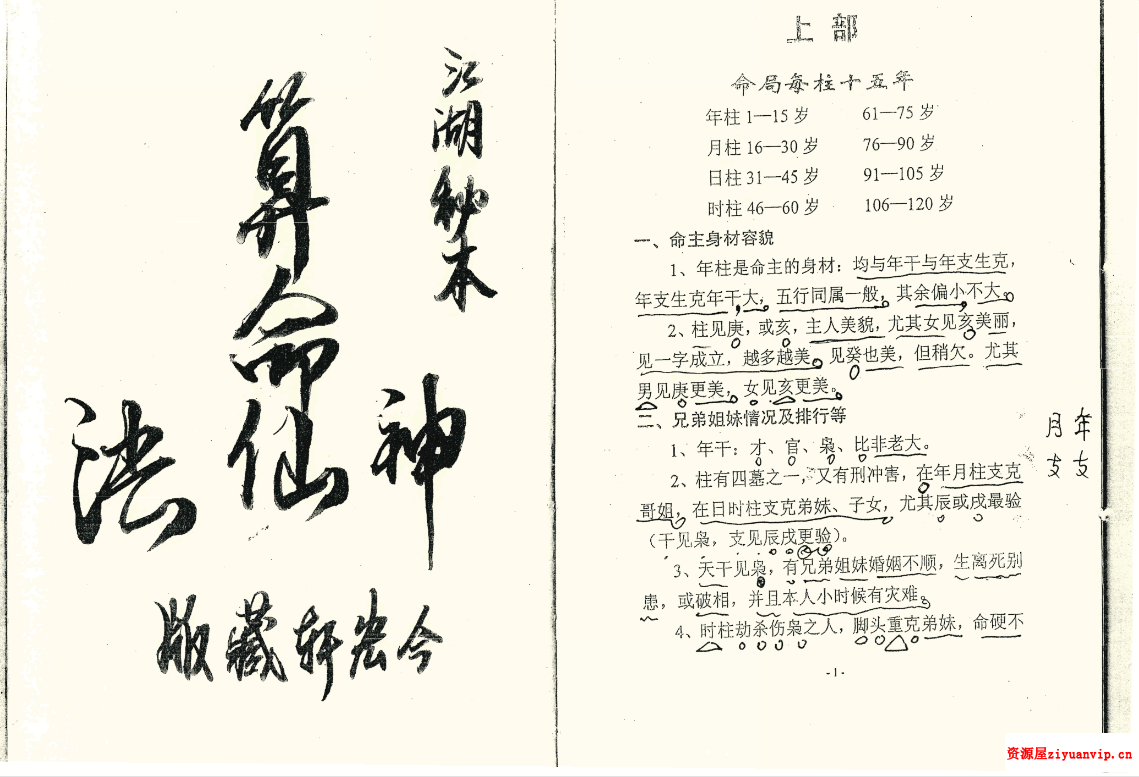 江湖秘本
算命
神仙法
今宏轩藏版
上部
命局每柱十五年
年柱 1—15 岁 61—75 岁
月柱 16—30 岁 76—90 岁
日柱 31—45 岁 91—105 岁
时柱 46—60 岁 106—120 岁
一、命主身材容貌
1、年柱是命主的身材：均与年干与年支生克，
年支生克年干大，五行同属一般，其余偏小不大。
2、柱见庚，或亥，主人美貌，尤其女见亥美丽，
见一字成立，越多越美。见癸也美，但稍欠。尤其
男见庚更美，女见亥更美。
二、兄弟姐妹情况及排行等
1、年干：才、官、枭、比非老大。
2、柱有四墓之一，又有刑冲害，在年月柱支克
哥姐，在日时柱支克弟妹、子女，尤其辰或戌最验
（干见枭，支见辰戌更验）。
3、天干见枭，有兄弟姐妹婚姻不顺，生离死别
患，或破相，并且本人小时候有灾难。
4、时柱劫杀伤枭之人，脚头重克弟妹，命硬不
年支
月支
-1-
资源屋ziyuanvip.cn